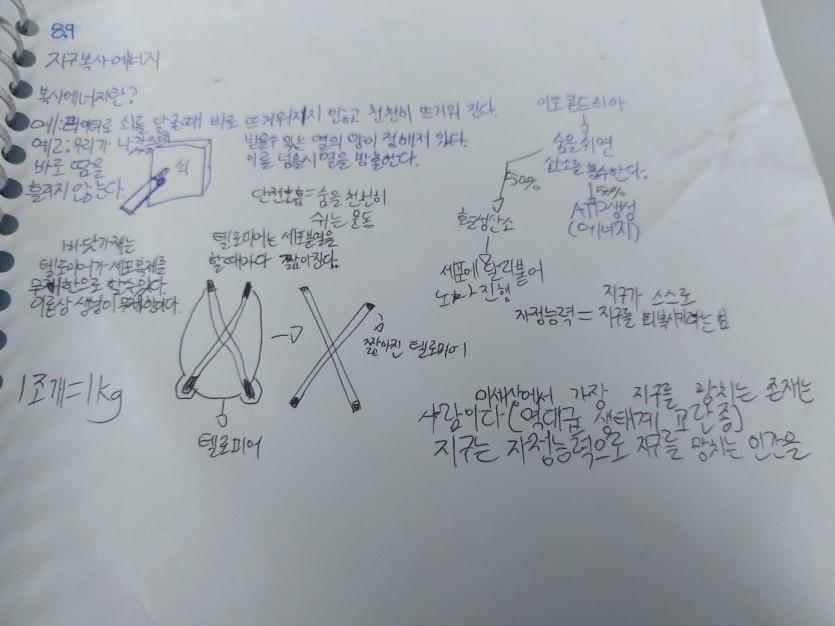 8.9
지구복사에너지
복사에너지란?
예: 로 쇠를 달굴때 바로 뜨거워지지 않고 천천히 뜨거워 진다.
예2: 우리가 나갔을때
바로 땀을
흘리지 않는다.
쇠
받을수 있는 열의 양이 정해져 있다.
이를 넘을시 열을 방출한다.
단전호흡=숨을 천천히
쉬는 운동
미토콘드리아
숨을 쉬면
산소를 흡수한다.
50%
50%
ATP생성
(에너지)
활성산소
세포에 달라붙어
노화진행
바닷가재는
텔로미어가 세포복제를
무제한으로 할수있다.
이론상 생명이 무제한이다.
텔로미어는 세포분열을
할때마다 짧아진다.
짧아진 텔로미어
텔로미어
1조개=1kg
자정능력=
지구가 스스로
지구를 회복시키려는 힘
이세상에서 가장 지구를 망치는 존재는
사람이다(역대급 생태계 교란종)
지구는 자정능력으로 지구를 망치는 인간을